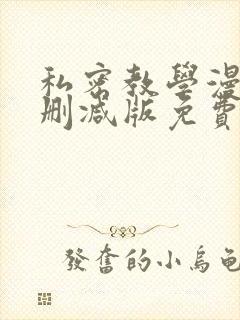 私密教學漫
刪減版免費
發奮的小烏龜